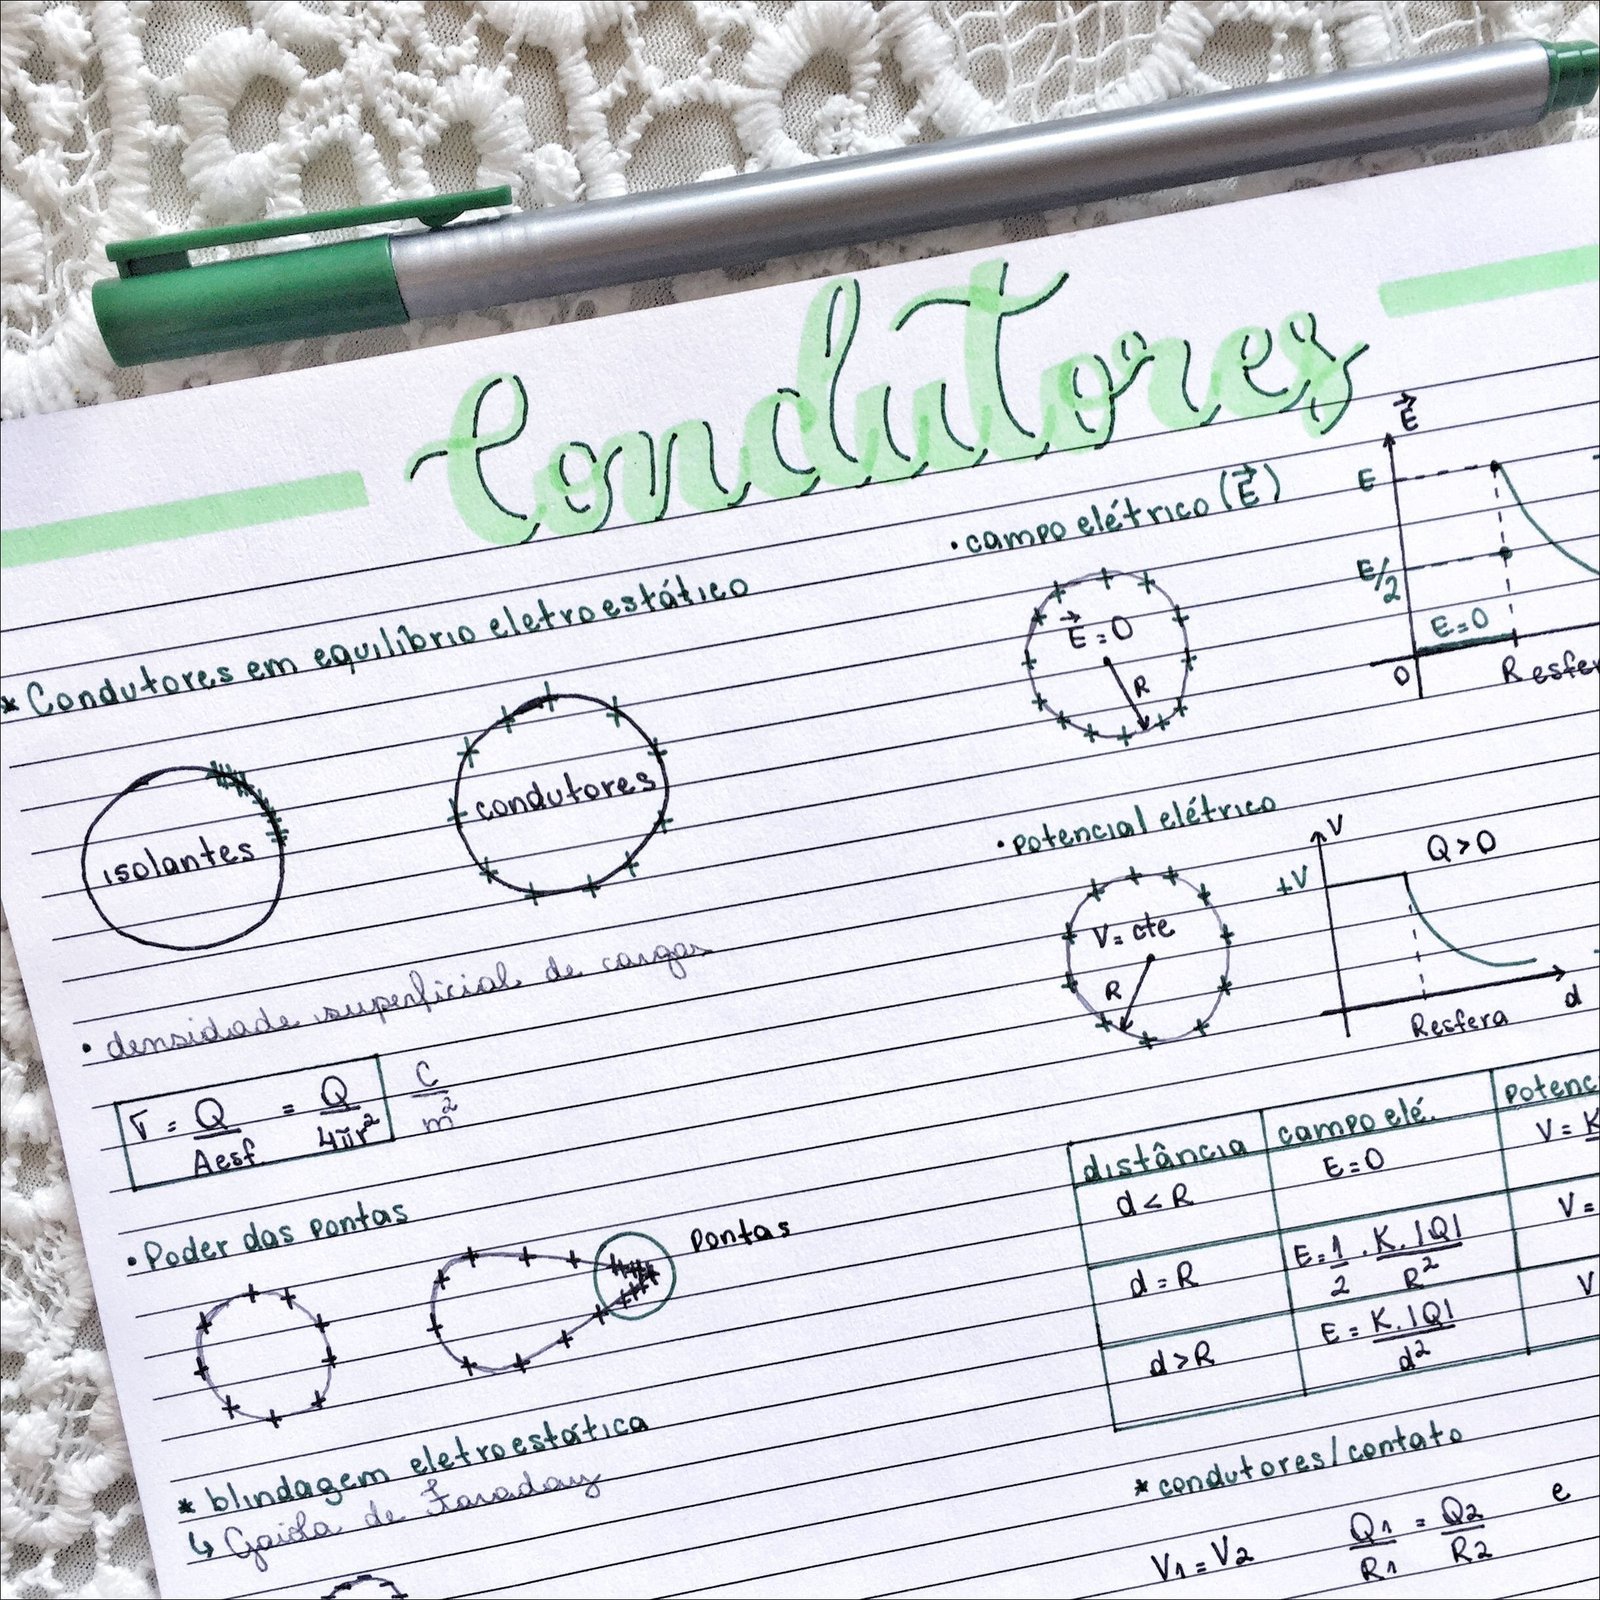 Condutores
* Condutores em equilíbrio eletroestático
isolantes
condutores
• densidade superficial de cargas
σ = Q/Aesf. = Q/4πr² C/m²
• Poder das pontas
pontas
* blindagem eletroestática
↳ Gaiola de Faraday
• campo elétrico (E⃗)
E⃗ = 0
R
E⃗
E
E/2
E=0
0
R esfer
• potencial elétrico
V = cte
R
V
+V
Q > 0
Resfera
d
distância | campo elé. | potenc
d < R | E = 0 | V = K
d = R | E = 1/2 . K.|Q|/R² | V =
d > R | E = K.|Q|/d² | V
* condutores/contato
V1 = V2 Q1/R1 = Q2/R2 e